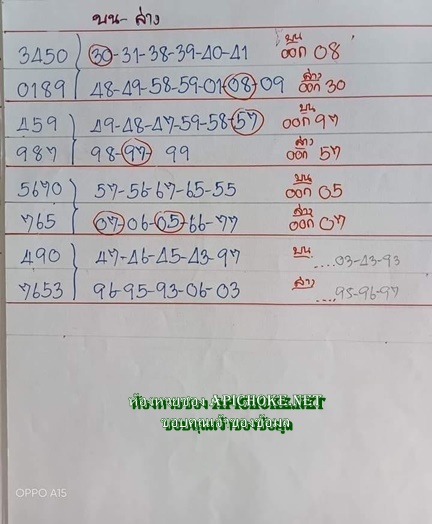 บน - ล่าง
3450 30-31-38-39-40-41 บน ออก 08
0189 48-49-58-59-01-08-09 ล่าง ออก 30
459 49-48-47-59-58-57 บน ออก 97
987 98-97-99 ล่าง ออก 57
5670 57-56-67-65-55 บน ออก 05
765 07-06-05-66-77 ล่าง ออก 07
490 47-46-45-43-97 บน ....03-43-93
7653 96-95-93-06-03 ล่าง ....95-96-97
ห้องหวยซอง APICHOKE.NET
ขอบคุณเจ้าของข้อมูล
OPPO A15